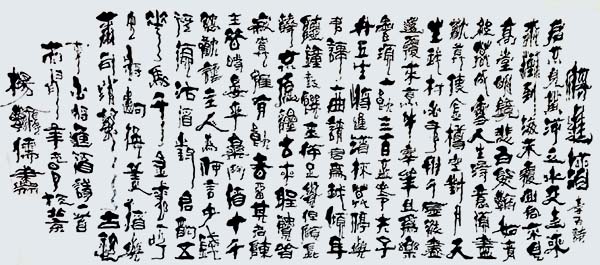 將進酒 李白詩
君不見黃河之水天上來
奔流到海不復回君不見
高堂明鏡悲白髮朝如青
絲暮成雪人生得意須盡
歡莫使金樽空對月天
生我材必有用千金散盡
還復來烹羊宰牛且為樂
會須一飲三百杯岑夫子
丹丘生將進酒杯莫停與
君歌一曲請君為我傾耳
聽鐘鼓饌玉何足貴但願長
醉不願醒古來聖賢皆
寂寞唯有飲者留其名陳
王昔時宴平樂斗酒十千
恣歡謔主人為何言少錢
徑須沽酒對君酌五
花馬千金裘呼
兒將出換美酒與
爾同銷萬古愁
李白將進酒詩一首
年春於
楊儒書